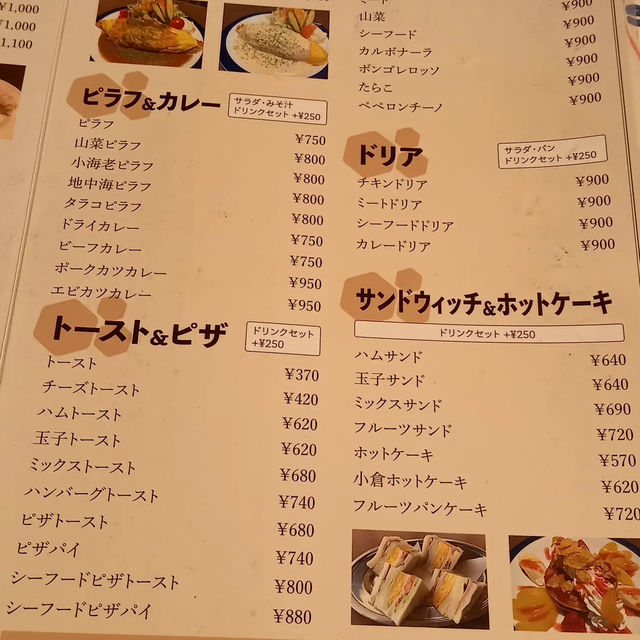 ¥1,000
¥1,000
1,100
ピラフ&カレー
サラダ・みそ汁
ドリンクセット +¥250
ピラフ ¥750
山菜ピラフ ¥800
小海老ピラフ ¥800
地中海ピラフ ¥800
タラコピラフ ¥800
ドライカレー ¥750
ビーフカレー ¥750
ポークカツカレー ¥950
エビカツカレー ¥950
トースト&ピザ
ドリンクセット
+¥250
トースト ¥370
チーズトースト ¥420
ハムトースト ¥620
玉子トースト ¥620
ミックストースト ¥680
ハンバーグトースト ¥740
ピザトースト ¥680
ピザパイ ¥740
シーフードピザトースト ¥800
シーフードピザパイ ¥880
山菜 ¥900
シーフード ¥900
カルボナーラ ¥900
ボンゴレロッソ ¥900
たらこ ¥900
ペペロンチーノ ¥900
ドリア
サラダ・パン
ドリンクセット +¥250
チキンドリア ¥900
ミートドリア ¥900
シーフードドリア ¥900
カレードリア ¥900
サンドウィッチ&ホットケーキ
ドリンクセット +¥250
ハムサンド ¥640
玉子サンド ¥640
ミックスサンド ¥690
フルーツサンド ¥720
ホットケーキ ¥570
小倉ホットケーキ ¥620
フルーツパンケーキ ¥720